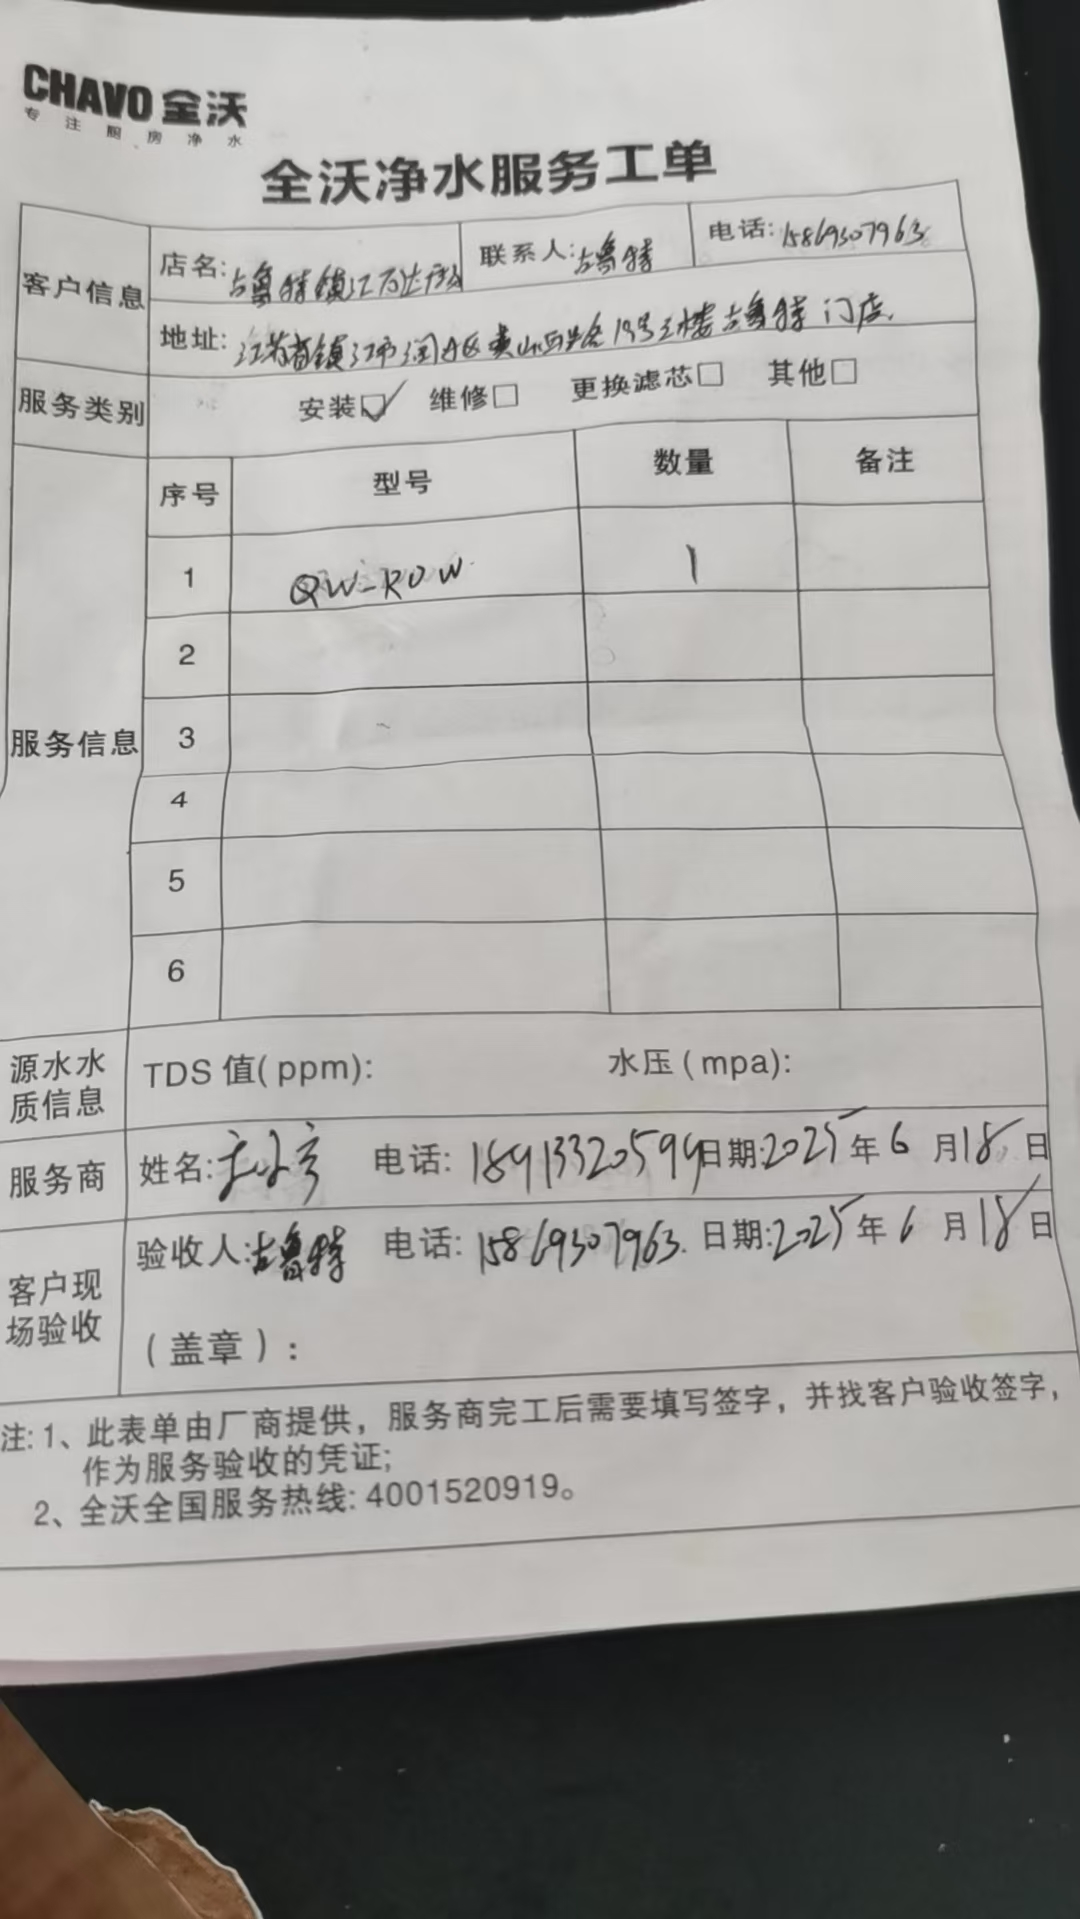 CHAVO 全沃
专注厨房净水
全沃净水服务工单
客户信息
店名:古鲁特镇江万达店
联系人:古鲁特
电话:15869307963
地址:江苏省镇江市润州区黄山西路19号三楼古鲁特门店.
服务类别
安装☑ 维修□ 更换滤芯□ 其他□
服务信息
序号 型号 数量 备注
1 QW-ROW 1
2
3
4
5
6
源水水质信息
TDS 值(ppm): 水压(mpa):
服务商
姓名: 电话:18913320594 日期:2025年6月18日
客户现场验收
验收人:古鲁特 电话:15869307963. 日期:2025年6月18日
(盖章):
注:1、此表单由厂商提供，服务商完工后需要填写签字，并找客户验收签字，
作为服务验收的凭证;
2、全沃全国服务热线:4001520919。